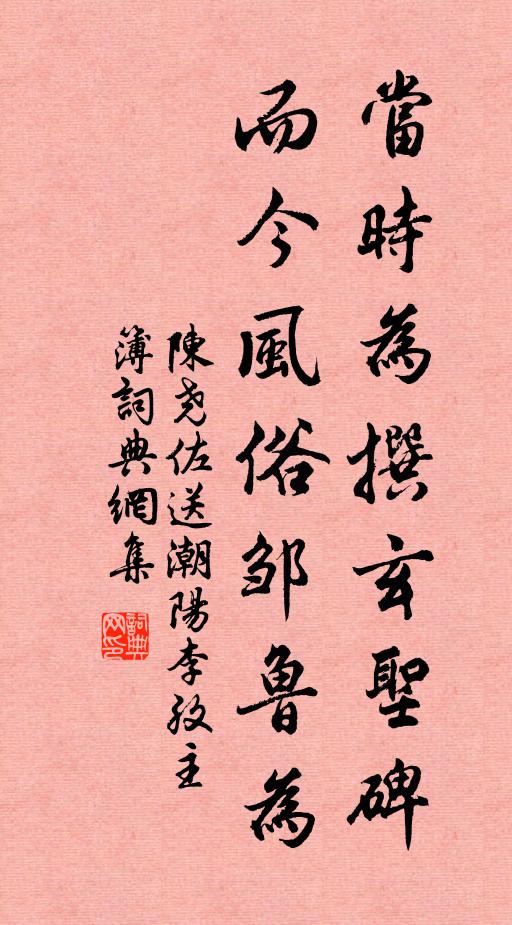 當時為撰玄聖碑
而今風俗邹魯為
陳尧佐送潮陽李孜主
簿詞典網集
詞典网印